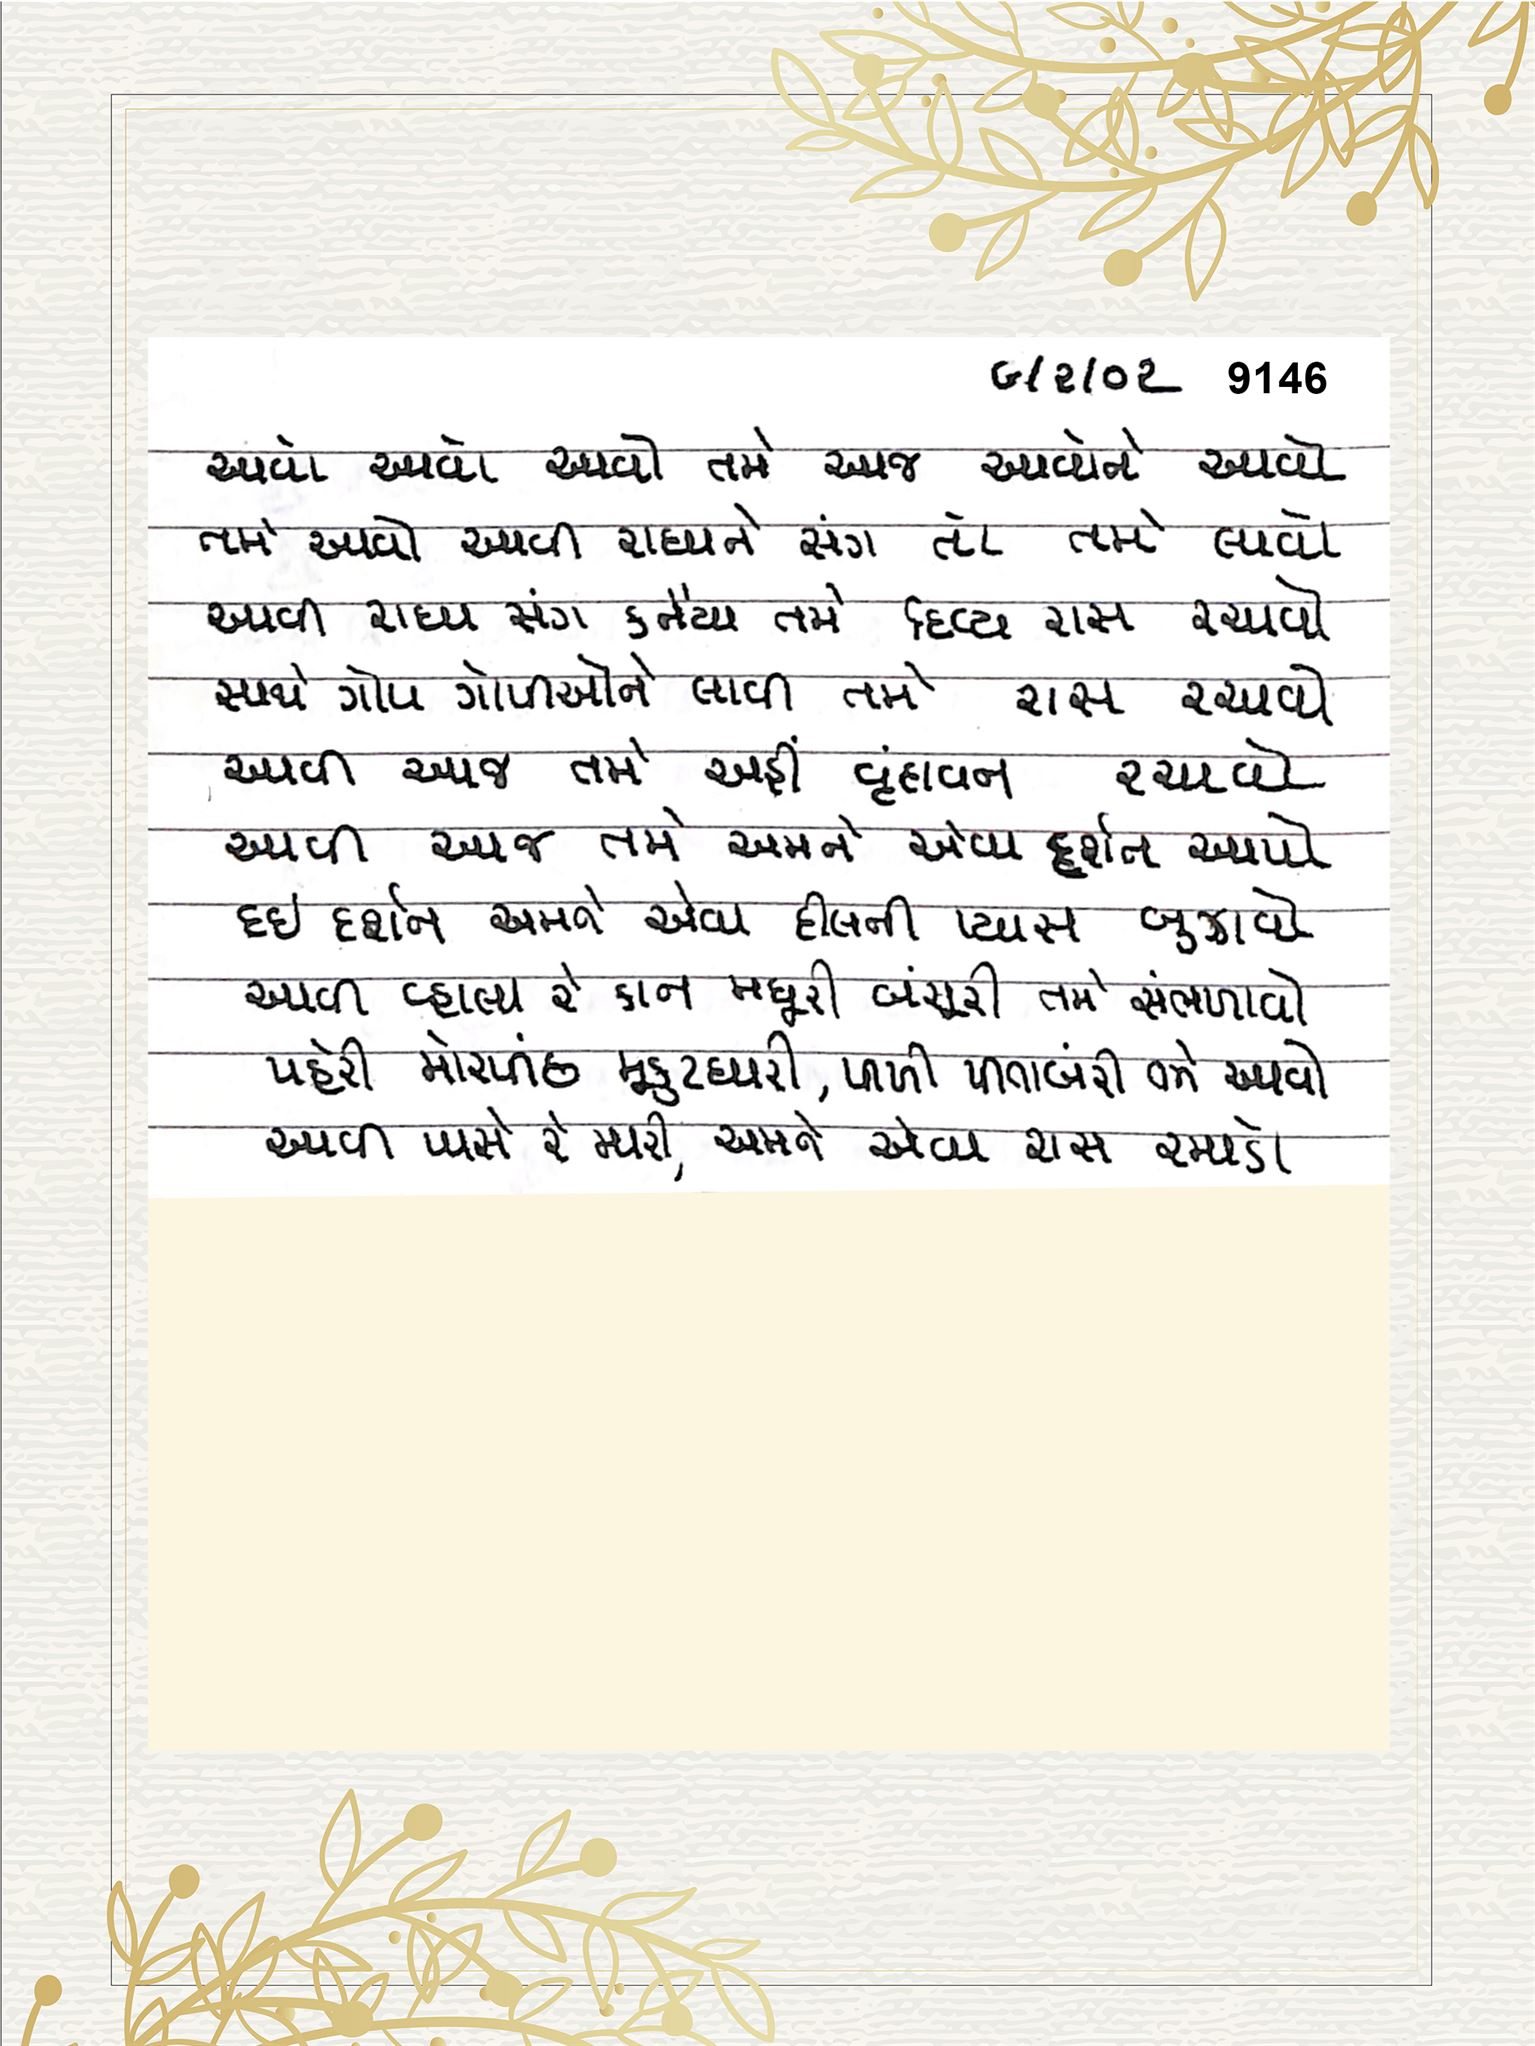 ૯/૨/૦૨ 9146
આવો આવો આવો તમે આજ આવોને આવો
તમે આવો આવી રાધાને સંગ તો તમે લાવો
આવી રાધા સંગ કનૈયા તમે દિવ્ય રાસ રચાવો
સાથે ગોપ ગોપીઓને લાવી તમે રાસ રચાવો
આવી આજ તમે અહીં વૃંદાવન રચાવો
આવી આજ તમે અમને એવા દર્શન આપો
દઈ દર્શન અમને એવા દીલની પ્યાસ બુઝાવો
આવી વ્હાલા રે કાન મધૂરી બંસૂરી તમે સંભળાવો
પહેરી મોરપીંછ મૂકુટધારી, પીળી પીતાબંરી તમે આવો
આવી પાસે રે મારી, અમને એવા રાસ રમાડો